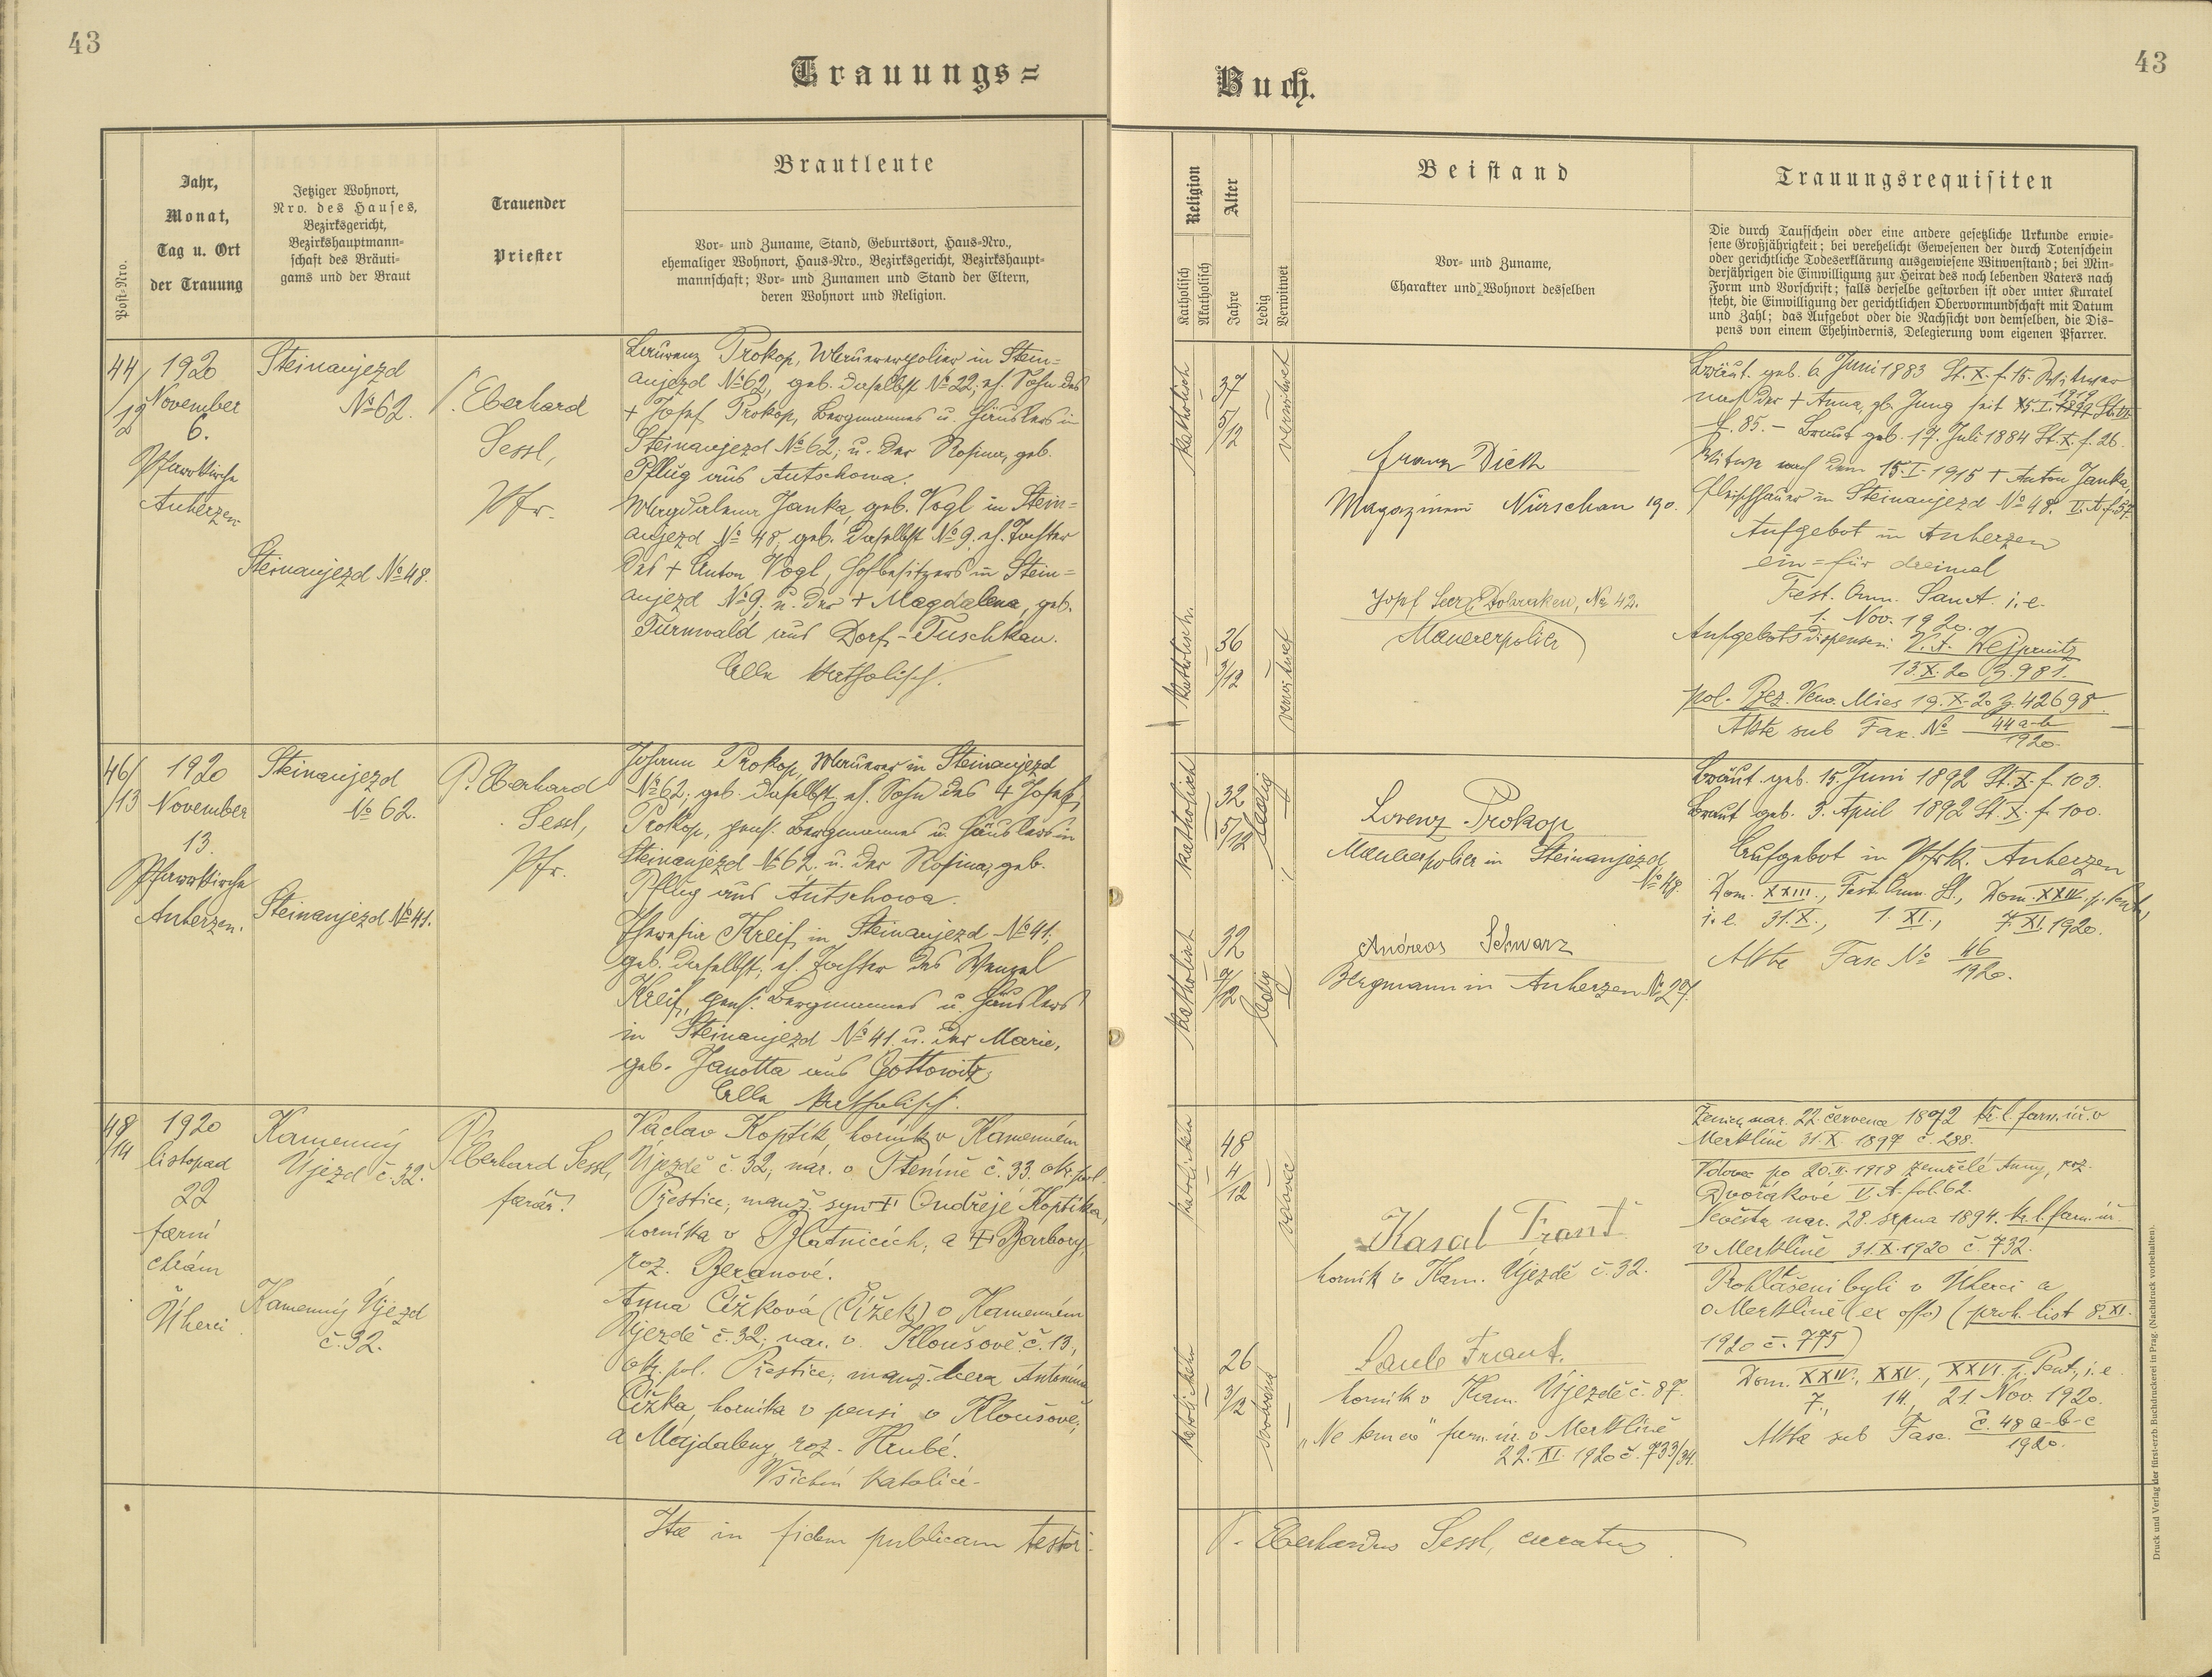 43
Trauungs=
Post-Nro.
Jahr,
Monat,
Tag u. Ort
der Trauung
Jetziger Wohnort,
Nro. des Hauses,
Bezirksgericht,
Bezirkshauptmann=
schaft des Bräuti=
gams und der Braut
Trauender
Priester
Brautleute
Vor- und Zuname, Stand, Geburtsort, Haus-Nro.,
ehemaliger Wohnort, Haus-Nro., Bezirksgericht, Bezirkshaupt=
mannschaft; Vor- und Zunamen und Stand der Eltern,
deren Wohnort und Religion.
44/
/12
1920
November
6.
Pfarrkirche
Anherzen
Steinaujezd
No 62.
Steinaujezd No 48.
P. Eberhard
Sessl,
Pfr.
Laurenz Prokop, Maurerpolier in Stein=
aujezd No 62, geb. daselbst No 22; eh. Sohn des
+ Josef Prokop, Bergmannes u. Häuslers in
Steinaujezd No 62; u. der Rosina, geb.
Pflug aus Autschowa.
Magdalena Janka, geb. Vogl in Stein=
aujezd No 48, geb. daselbst No 9, eh. Tochter
des + Anton Vogl, Hofbesitzers in Stein=
aujezd No 9; u. der + Magdalena, geb.
Turnwald aus Dorf-Tuschkau.
Alle katholisch.
46/
/13
1920
November
13.
Pfarrkirche
Anherzen.
Steinaujezd
No 62.
Steinaujezd No 41.
P. Eberhard
Sessl,
Pfr.
Johann Prokop, Maurer in Steinaujezd
No 62; geb. daselbst, eh. Sohn des + Josef
Prokop, pens. Bergmannes u. Häuslers in
Steinaujezd No 62. u. der Rosina, geb.
Pflug aus Autschowa.
Theresia Kreis, in Steinaujezd No 41;
geb. daselbst; eh. Tochter des Wenzel
Kreis, pens. Bergmannes u. Häuslers
in Steinaujezd No 41. u. der Marie,
geb. Janotta aus Gottowitz.
Alle katholisch.
48
/14
1920
listopad
22
farní
chrám
Úherci
Kamenný
Újezd č. 32.
Kamenný Újezd
č. 32.
P.
Eberhard Sessl,
farář.
Václav Koptík, horník v Kamenném
Újezdě č. 32; nar. v Pteníně č. 33. okr. pol.
Přestice; manž. syn + Ondřeje Koptíka,
horníka v Blatnicích; a + Barbory,
roz. Beranové.
Anna Čížková (Čížek) v Kamenném
Újezdě č. 32; nar. v Kloušově č. 13.,
okr. pol. Přestice; manž. dcera Antonína
Čížka, horníka v pensi v Kloušově;
a Majdaleny, roz. Hrubé.
Všichni katolíci.
Ita in fidem publicam testor:
43
Buch.
Religion
Katholisch
Akatholisch
Alter
Jahre
Ledig
Verwitwet
Beistand
Vor- und Zuname,
Charakter und Wohnort desselben
Trauungsrequisiten
Die durch Taufschein oder eine andere gesetzliche Urkunde erwie=
sene Großjährigkeit; bei verehelicht Gewesenen der durch Totenschein
oder gerichtliche Todeserklärung ausgewiesene Witwenstand; bei Min=
derjährigen die Einwilligung zur Heirat des noch lebenden Vaters nach
Form und Vorschrift; falls derselbe gestorben ist oder unter Kuratel
steht, die Einwilligung der gerichtlichen Obervormundschaft mit Datum
und Zahl; das Aufgebot oder die Nachsicht von demselben, die Dis=
pens von einem Ehehindernis, Delegierung vom eigenen Pfarrer.
katholisch
37
5/12
verwitwet
Franz Dick
Magazineur Nürschan 190.
katholisch.
36
3/12
verwitwet
Dobraken, No 42.
Maurerpolier
Bräut. geb. 6. Juni 1883 St. X. f. 15. Witwer
nach der + Anna, gb. Jung seit 15. I. 1919
f. 85. – Braut geb. 17. Juli 1884 St. X. f. 26.
Witwe nach dem 15. I. 1915 + Anton Janka,
Fleischhauer in Steinaujezd No 48.
Aufgebot in Anherzen
ein= für dreimal
Fest. Omn. Sanct. i. e.
1. Nov. 1920.
Aufgebotsdispensen: V. A. Wejprnitz
13. X. 20 Z. 981.
pol. Bez. Verw. Mies 19. X. 20 Z. 42698.
Akte sub Fasc. No 44 a-b
1920.
katholisch
32
5/12
ledig
Lorenz Prokop
Maurerpolier in Steinaujezd
No 48.
katholisch
32
7/12
ledig
Andreas Schwarz
Bergmann in Anherzen No 27.
Bräut. geb. 15. Juni 1892 St. X. f. 103.
Braut geb. 3. April 1892 St. X. f. 100.
Aufgebot in Pfrk. Anherzen
Dom. XXIII., Fest. Omn. S., Dom. XXIV. p. Pent.,
i. e. 31. X., 1. XI., 7. XI. 1920.
Akte Fasc No 46
1920.
48
4/12
vdovec
Kasal Frant.
horník v Kam. Újezdě č. 32.
26
3/12
svobodná
Frant.
horník v Kam. Újezdě č. 87.
„Ne temere" farn. úř. v Merklíně
22. XI. 1920 č. 733/34.
Ženich nar. 22 června 1872 kř. l. farn. úř. v
Merklíně 31. X. 1897 č. 288.
Vdovec po 20. II. 1918 zemřelé Anny, roz.
Dvořákové V. A. fol. 62.
Nevěsta nar. 28. srpna 1894. kř. l. farn. úř.
v Merklíně 31. X. 1920 č. 732.
Prohlášeni byli v Úherci a
v Merklíně (ex offo) (proh. list 8. XI.
1920 č. 775)
Dom. XXIV., XXV., XXVI. p. Pent., i. e
7., 14., 21. Nov. 1920.
Akta sub Fasc. č. 48 a-b-c
1920.
P. Eberhardus Sessl, curatus
Druck und Verlag der fürst-erzb. Buchdruckerei in Prag. (Nachdruck vorbehalten).